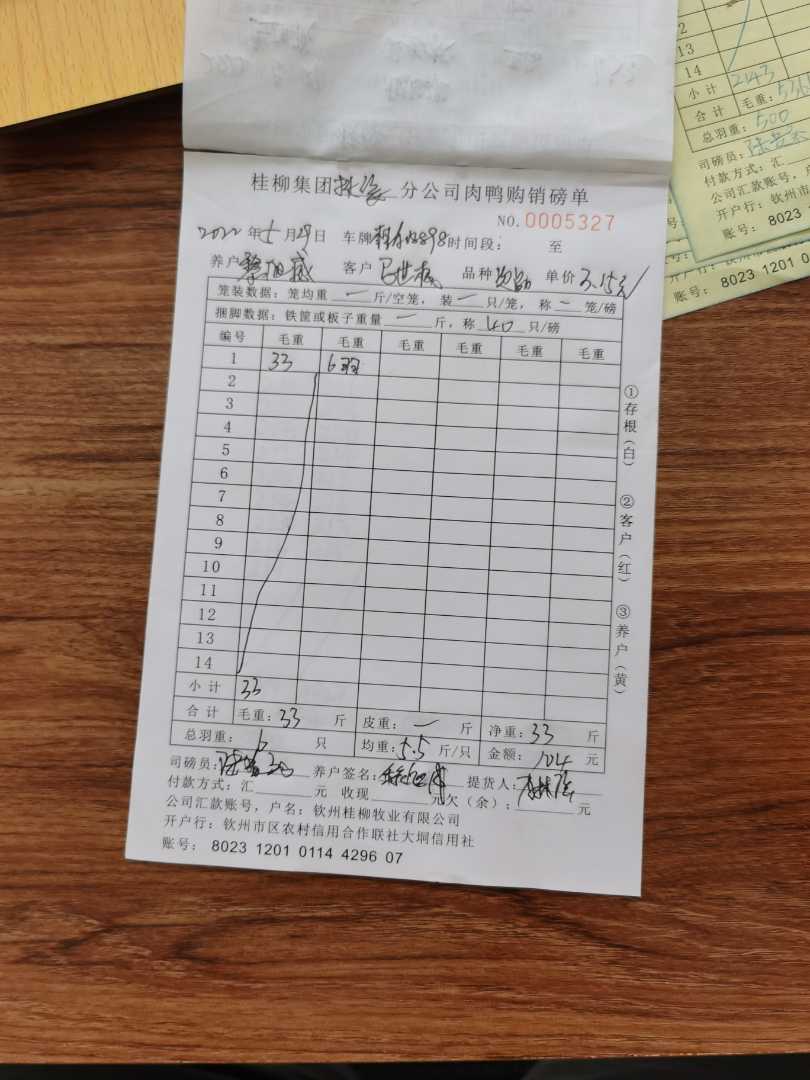 桂柳集团 分公司肉鸭购销磅单
NO.0005327
2022年5月29日 车牌 898时间段: 至
养户 客户 品种 单价3.15元
笼装数据: 笼均重 一 斤/空笼, 装 一 只/笼, 称 一 笼/磅
捆脚数据: 铁筐或板子重量 一 斤, 称 40 只/磅
编号 毛重 毛重 毛重 毛重 毛重 毛重
1 33 6羽
2
3
4
5
6
7
8
9
10
11
12
13
14
小计 33
合计 毛重: 33 斤 皮重: 一 斤 净重: 33 斤
总羽重: 6 只 均重: 5.5 斤/只 金额: 104 元
司磅员: 养户签名: 提货人:
付款方式: 汇 元 收现 元欠(余): 元
公司汇款账号, 户名: 钦州桂柳牧业有限公司
开户行: 钦州市区农村信用合作联社大垌信用社
账号: 8023 1201 0114 4296 07
①存根(白) ②客户(红) ③养户(黄)
12
13
14
小计 2143
合计 毛重:
总羽重: 500
司磅员:
付款方式: 汇
公司汇款账号,
开户行: 钦州
账号: 8023
账号: 8023 1201 0